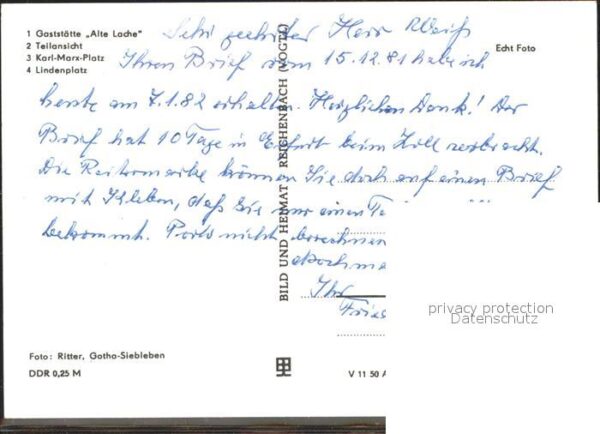 1 Gaststätte „Alte Lache"
2 Teilansicht
3 Karl-Marx-Platz
4 Lindenplatz
Echt Foto
Sehr geehrter Herr Weiß
Ihren Brief vom 15.12.81 habe ich
heute am 7.1.82 erhalten. Herzlichen Dank! Der
Brief hat 10 Tage in Erfurt beim Zoll verbracht.
Die Reitermarke können Sie doch auf einen Brief
mit kleben, daß Sie nur einen Te
bekommt. Porto nicht berechnen
Nochma
Ihr
Fried
BILD UND HEIMAT REICHENBACH (VOGTL)
privacy protection
Datenschutz
Foto: Ritter, Gotha-Siebleben
DDR 0,25 M
V 11 50 A